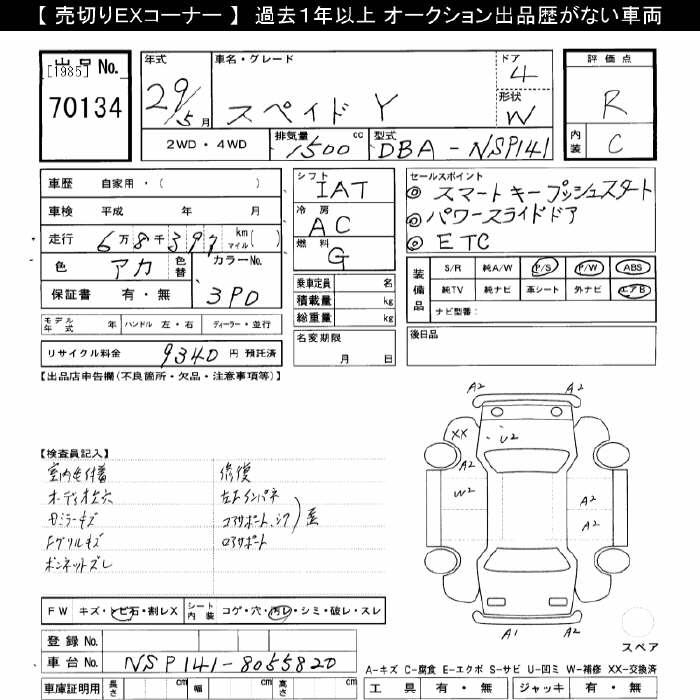 【 売切りEXコーナー 】 過去1年以上 オークション出品歴がない車両
出品 No.
[1985]
70134
年式
29/5月
車名・グレード
スペイド Y
ドア
4
形状
W
評価点
R
内装
C
2WD・4WD
排気量
1500 cc
型式
DBA-NSP141
車歴 自家用・( )
車検 平成 年 月
走行 6万8千397 km マイル( )
色 アカ 色替 カラーNo.
保証書 有・無 3PD
シフト
IAT
冷房
AC
燃料
G
セールスポイント
◎ スマートキープッシュスタート
◎ パワースライドドア
◎ ETC
乗車定員 名
積載量 kg
総重量 kg
装備品 S/R 純A/W P/S P/W ABS
純TV 純ナビ 革シート 外ナビ エアB
ナビ型番:
モデル年式 年 ハンドル 左・右 ディーラー・並行
名変期限
月 日
後日品
リサイクル料金 9340 円 預託済
【出品店申告欄(不良箇所・欠品・注意事項等)】
【検査員記入】
ボンネットズレ
修復
左Fインパネ
コアサポート
ロアサポート
A2 A2
XX U2
A2
W2 A2
A2
A1 A2
スペア
FW キズ・トビ石・割レX シート内装 コゲ・穴・汚レ・シミ・破レ・スレ
登録 No.
車台 No. NSP141-8055820
車庫証明用 長さ cm 幅 cm 高さ cm
A-キズ C-腐食 E-エクボ S-サビ U-凹ミ W-補修 XX-交換済
工具 有・無 ジャッキ 有・無